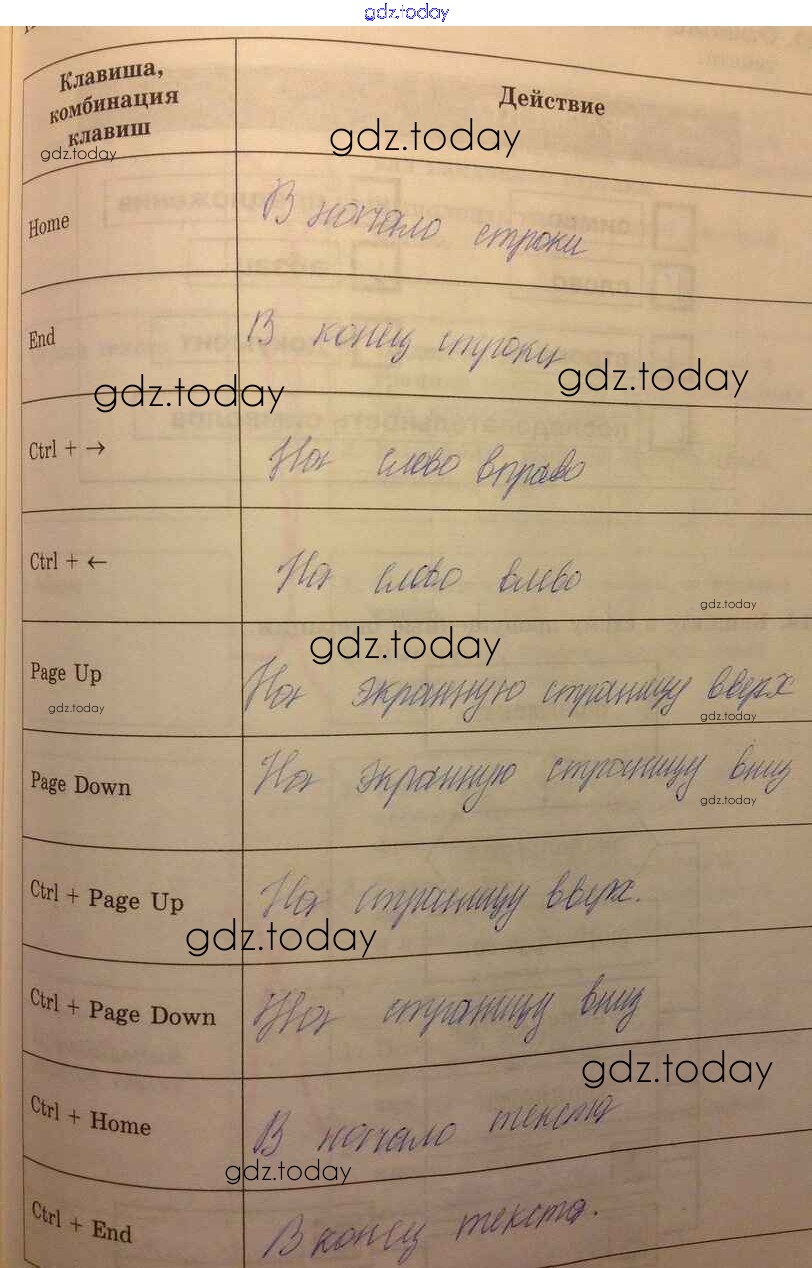 gdz.today
Клавиша,
комбинация
клавиш
Действие
gdz.today
gdz.today
Home
В начало строки
End
В конец строки
gdz.today
gdz.today
Ctrl + →
На слово вправо
Ctrl + ←
На слово влево
gdz.today
gdz.today
Page Up
На экранную страницу вверх
gdz.today
gdz.today
Page Down
На экранную страницу вниз
gdz.today
Ctrl + Page Up
На страницу вверх.
gdz.today
Ctrl + Page Down
На страницу вниз
gdz.today
Ctrl + Home
В начало текста
gdz.today
Ctrl + End
В конец текста.